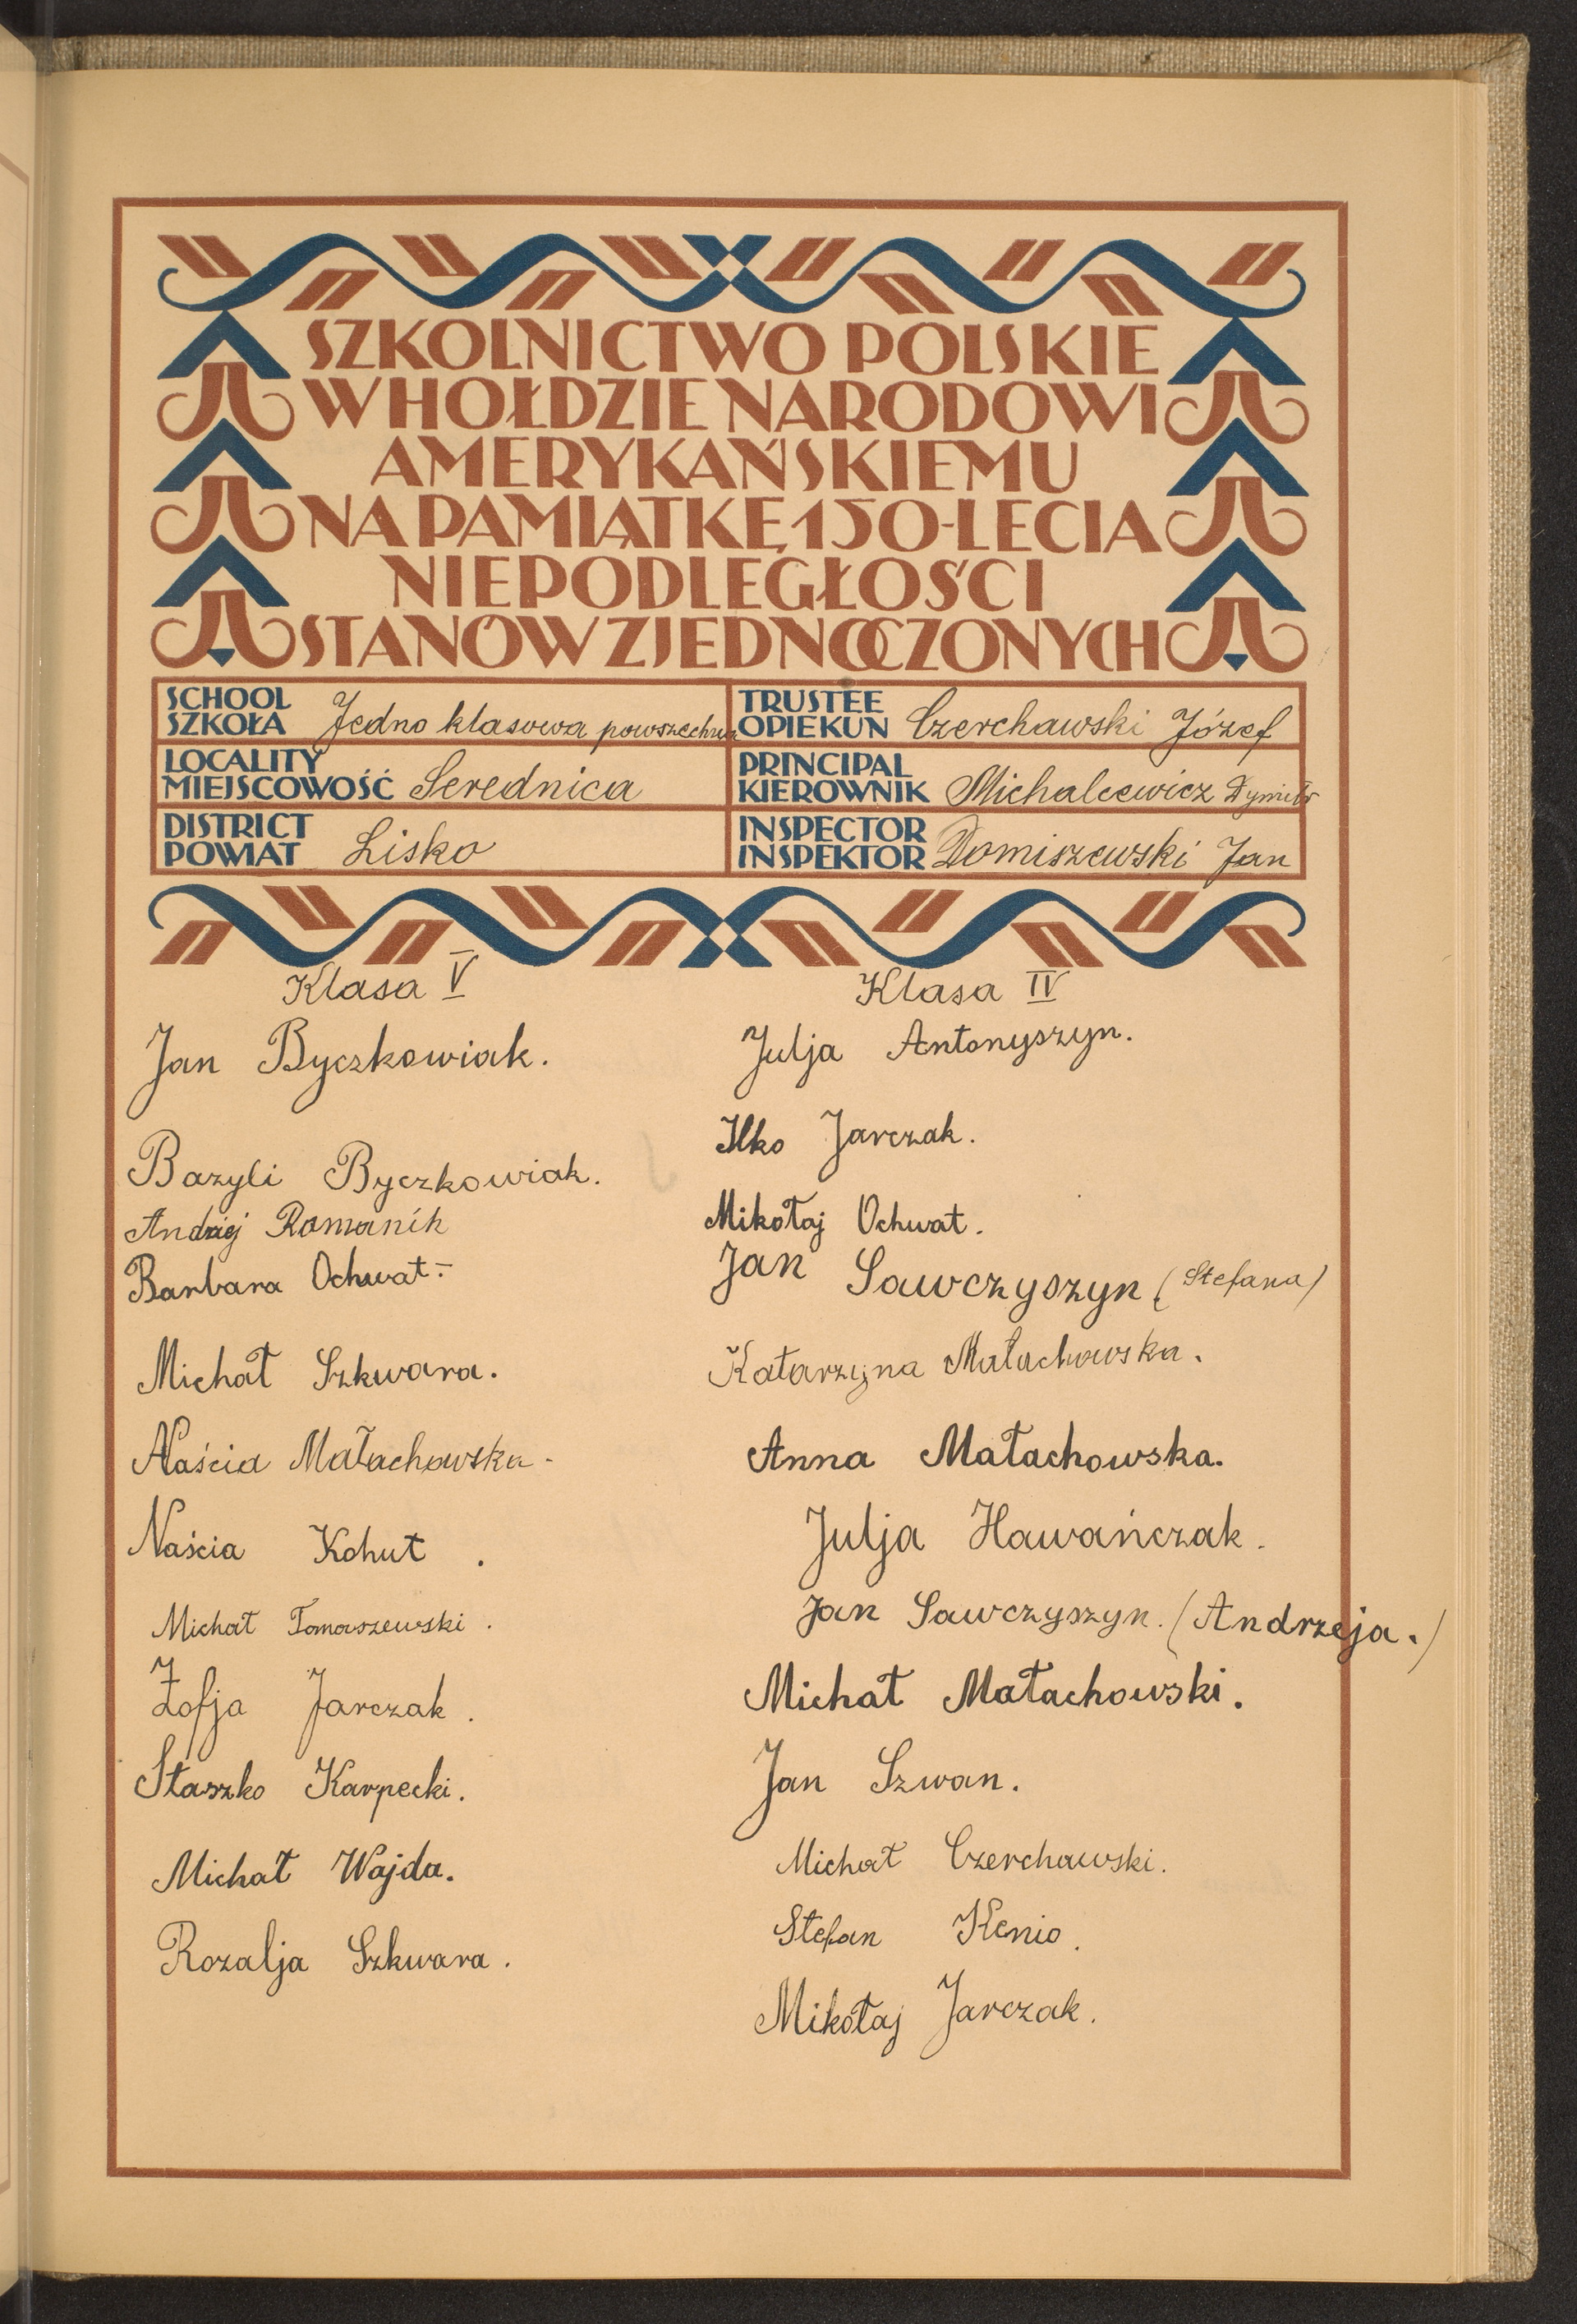 SZKOLNICTWO POLSKIE
W HOŁDZIE NARODOWI
AMERYKAŃSKIEMU
NA PAMIĄTKĘ 150-LECIA
NIEPODLEGŁOŚCI
STANÓW ZJEDNOCZONYCH
SCHOOL
SZKOŁA Jedno klasowa powszechna
LOCALITY
MIEJSCOWOŚĆ Serednica
DISTRICT
POWIAT Lisko
TRUSTEE
OPIEKUN Czerchawski Józef
PRINCIPAL
KIEROWNIK Michalcewicz Dymitr
INSPECTOR
INSPEKTOR Domiszewski Jan
Klasa V
Jan Byczkowiak.
Bazyli Byczkowiak.
Andrzej Romanik
Barbara Ochwat.
Michał Szkwara.
Naścia Małachowska.
Naścia Kohut.
Michał Tomaszewski.
Zofja Jarczak.
Staszko Karpecki.
Michał Wajda.
Rozalja Szkwara.
Klasa IV
Julja Antonyszyn.
Ilko Jarczak.
Mikołaj Ochwat.
Jan Sawczyszyn (Stefana)
Katarzyna Małachowska.
Anna Małachowska.
Julja Hawańczak.
Jan Sawczyszyn. (Andrzeja.)
Michał Małachowski.
Jan Szwan.
Michał Czerchawski.
Stefan Kenio.
Mikołaj Jarczak.